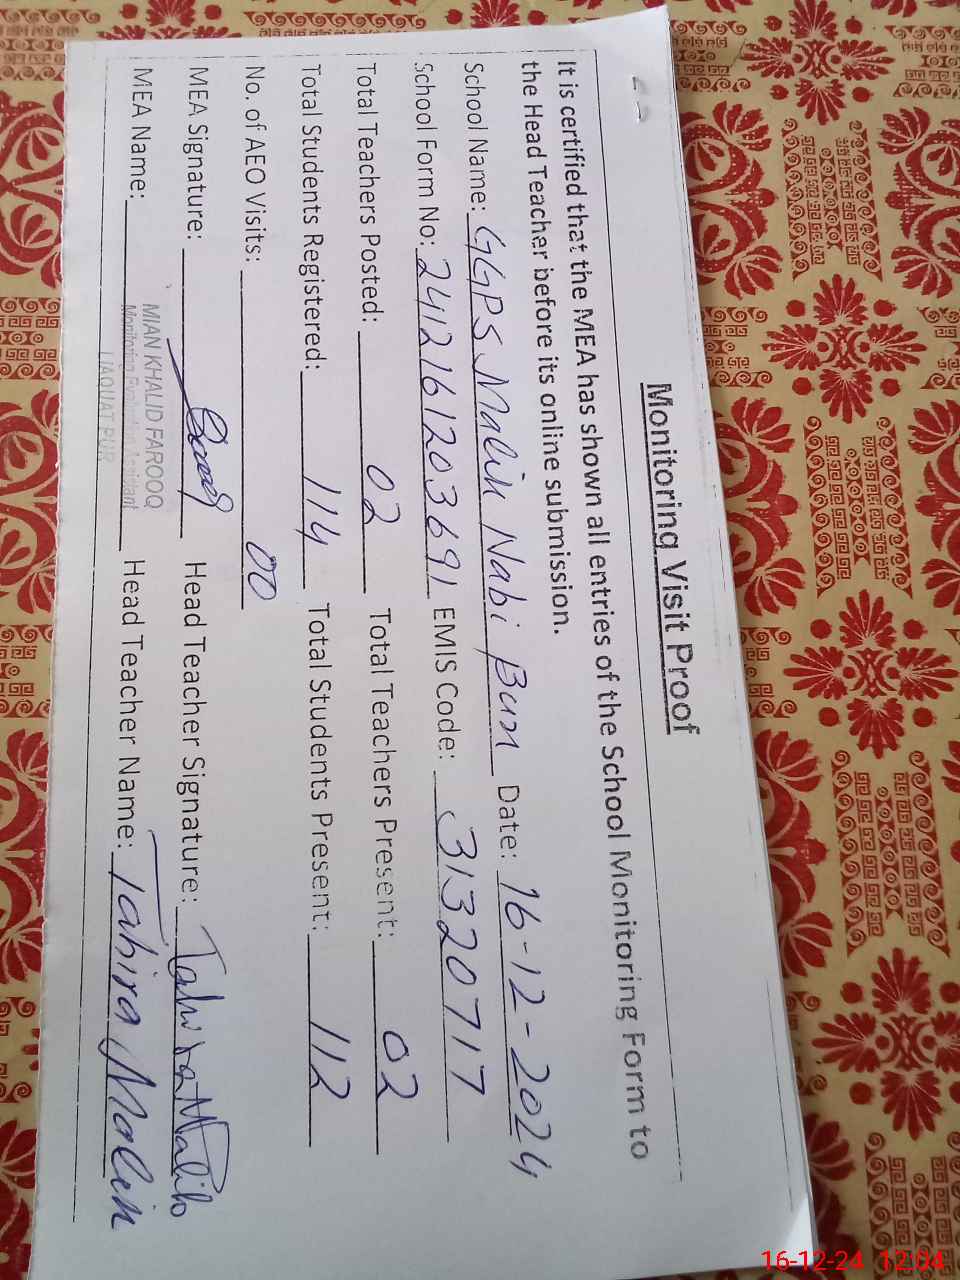 Monitoring Visit Proof
It is certified that the MEA has shown all entries of the School Monitoring Form to
the Head Teacher before its online submission.
School Name: GGPS Malik Nabi Bux Date: 16-12-2024
School Form No: 2412161203691 EMIS Code: 31320717
Total Teachers Posted: 02 Total Teachers Present: 02
Total Students Registered: 114 Total Students Present: 112
No. of AEO Visits: 00
MEA Signature: Head Teacher Signature: Tahira Malik
MIAN KHALID FAROOQ
MEA Name: Monitoring Evaluation Assistant Head Teacher Name: Tahira Malik
LIAQUAT PUR
16-12-24 12:04